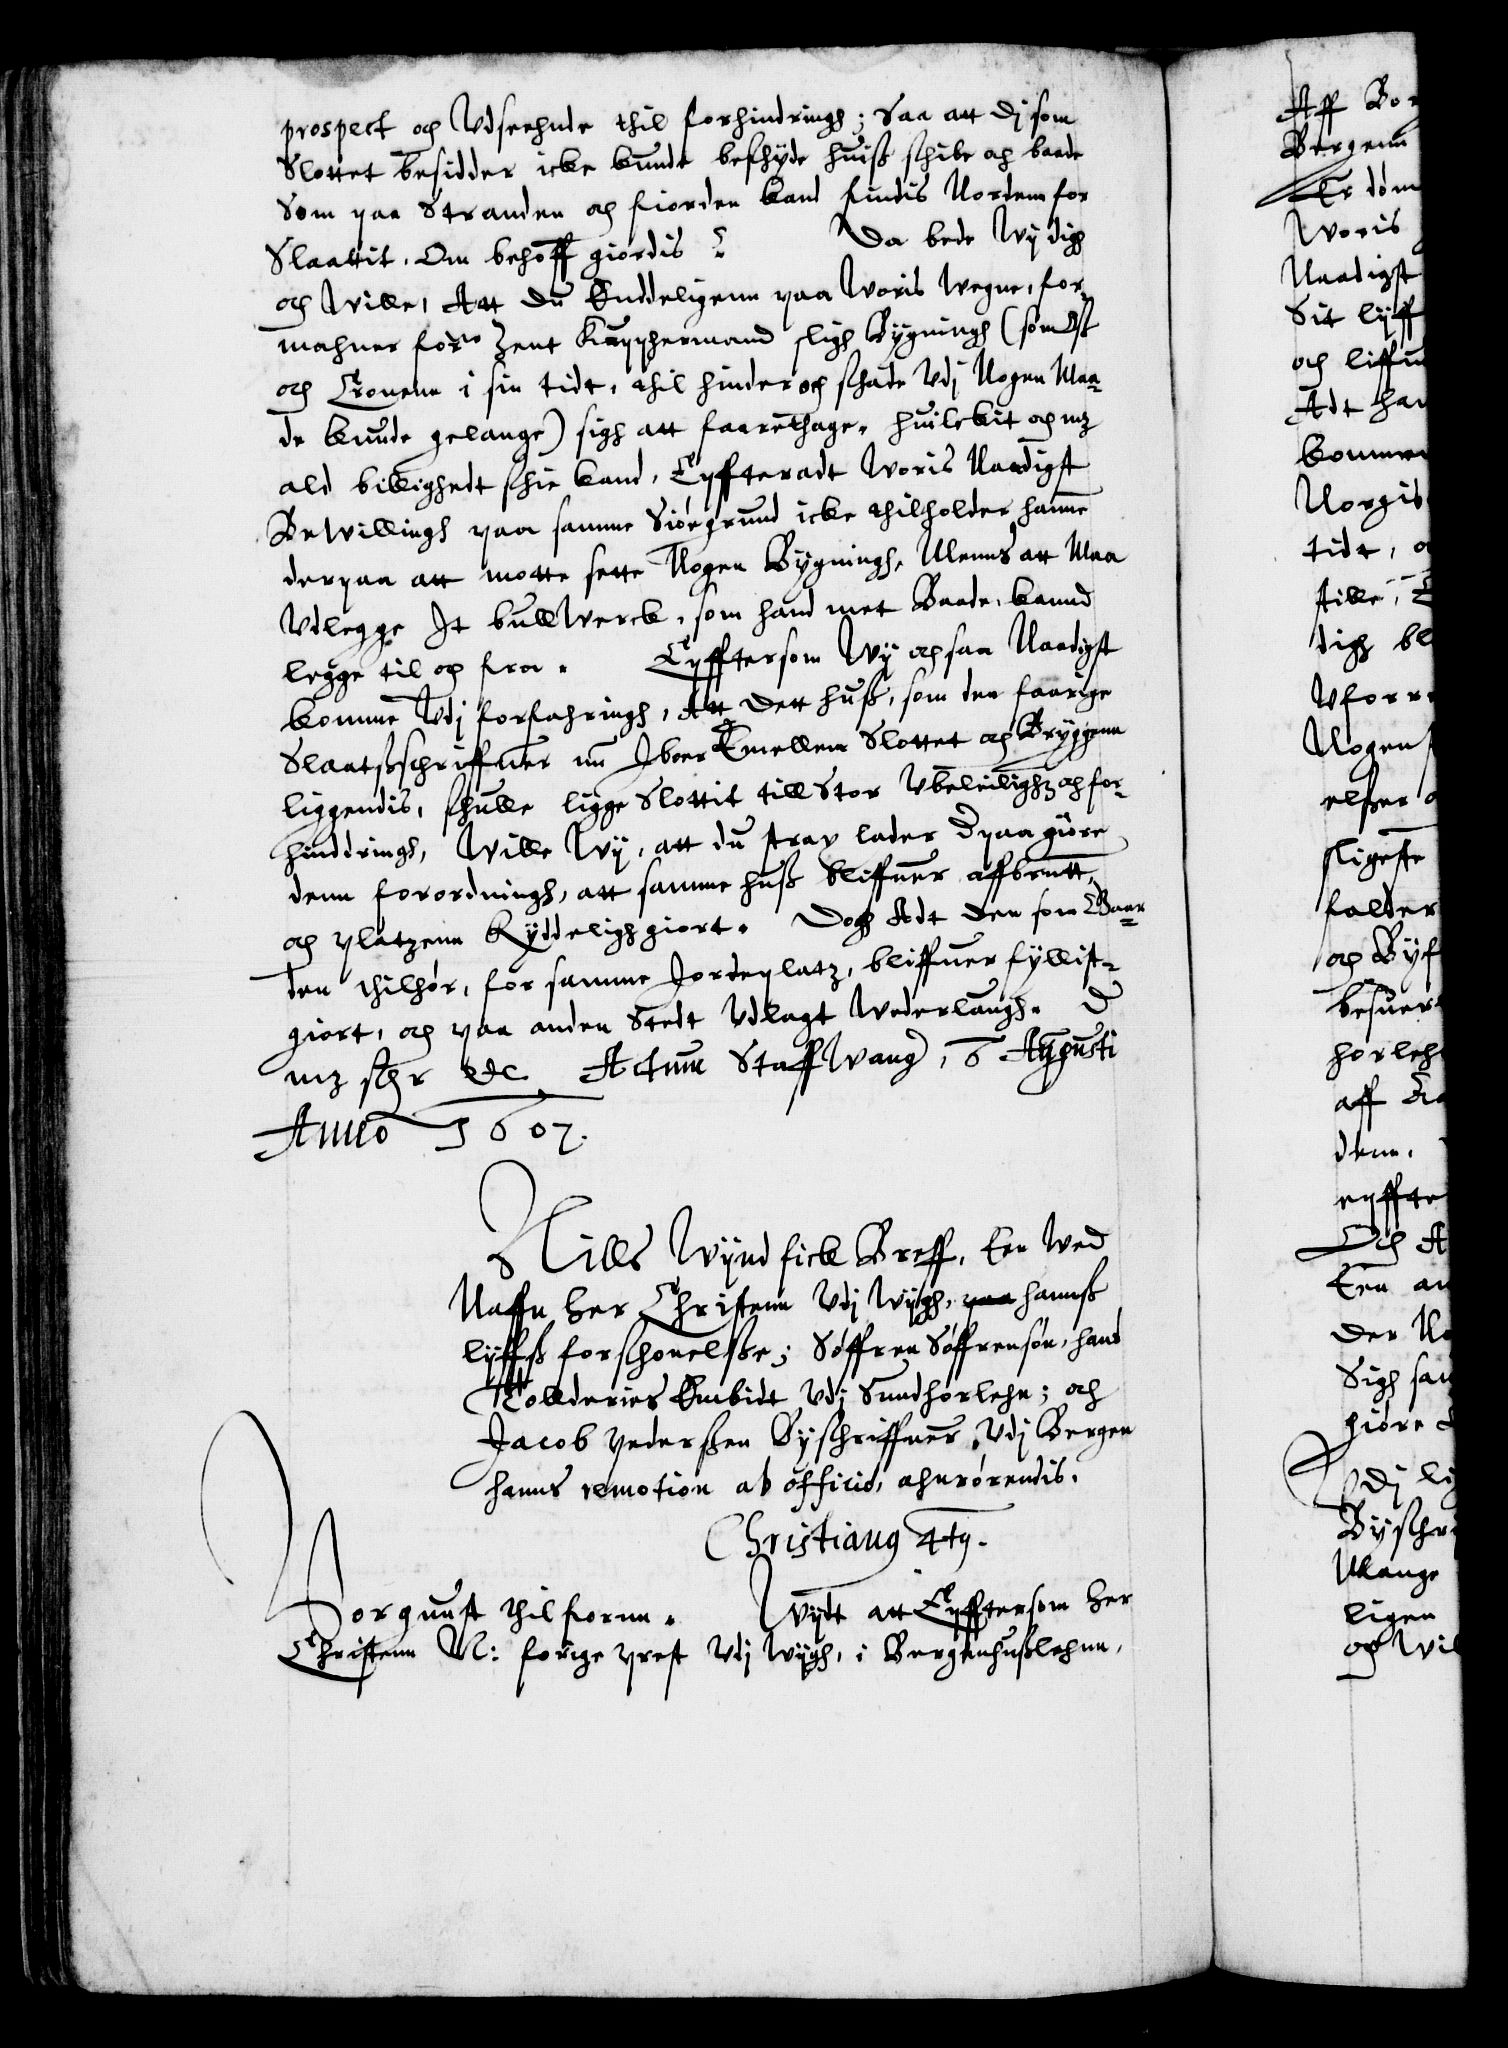 prospect och Udseehnde thil forhindringh; Saa att dj som
Slottet besidder icke kunde beschyde huiss schibe och baade
Som paa Stranden och fiorden kand findis Norden for
Slaattit. Om behoff giordis? Da bede Wij digh
och Wille, Att du Enddeligenn paa Woris Wegne, for¬
mahner for Zent Kepphermand sligh Bygningh (som Oss
och Cronenn i sin tidt, thil hinder och schade Udj Nogen Maa¬
de kunde gelange) sigh att faarethage. huilckit och mz
ald billighedt schie kand, Epffteradt Woris Naadigst
Bewillingh paa samme Siøegrund icke thilholder hanne
derpaa att motte sette Nogen Bygningh, Menns att Maa
Udlegge It bullWerck, som hand met Baade, kannd
legge til och fra. Epfftersom Wij och saa Naadigst
komme Udj forfahringh, Att Dett huss, som den faarige
Slaatssschriffuer nu Iboer Emellem Slottet och Bryggenn
liggendis, schulle ligge Slottit till Stor Ubeleilighz och for¬
hinddringh, Wille Wij, att du strax lader d paa giøre
denn forordningh, att samme huss bliffuer affbrutt,
och platzenn Ryddelig giort. Dogh Adt den som Gaar¬
den thilhør, for samme Jordeplatz, bliffuer fyllist¬
giort, och paa anden Stedt Udlagt Wederlaugh. D
mz schr etc Actum StaffWang, 6 Augusti
Anno 1607.
Nills Wijnd fick Breff, Een Wed
Naffn Her Christenn Udj Wijgh, paa hannss
lyffss forschonelsse; Søffren Søffrensøn, hans
Tollderies Embidt Udj Sundhorlehn; och
Jacob pederssen Byschriffuer, Udj Bergen
hanns remotion ab officio, ahnrørendis.
Christianus 4ty.
Worgunst thilfornn. Wijdt att Epfftersom Her
Christenn N: forige prest Udj Wijgh, i Bergenhusslehnn,
Aff Bor
Bergenn
Er døm
Woris
Naadigst
Sit lyff
och liffu
Adt han
kommen
Norgis
tidt, o
stille, E
digh bl
Uforre
Nogen s
elsser
sligeste
falder
och Byf
besuer
horleh
aff Ca
denn.
epffte
Och A
Een an
der No
Sigh san
giøre
Udj li
Byschri
Mange
ligen
og Wil